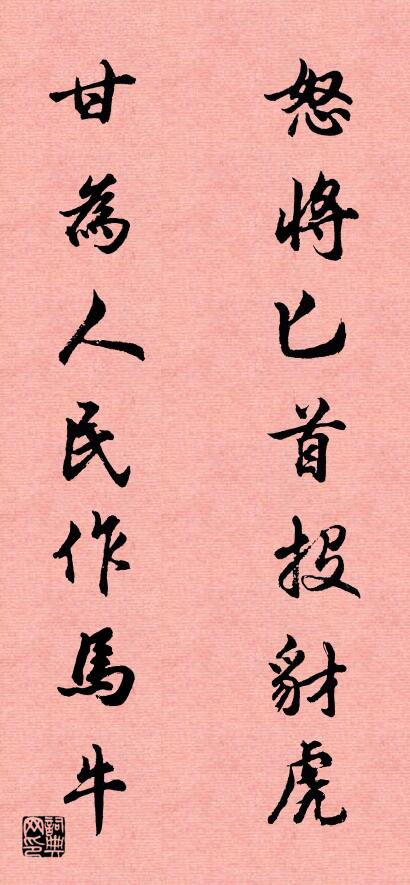 怒將匕首投豺虎
甘為人民作馬牛
詞典
网印